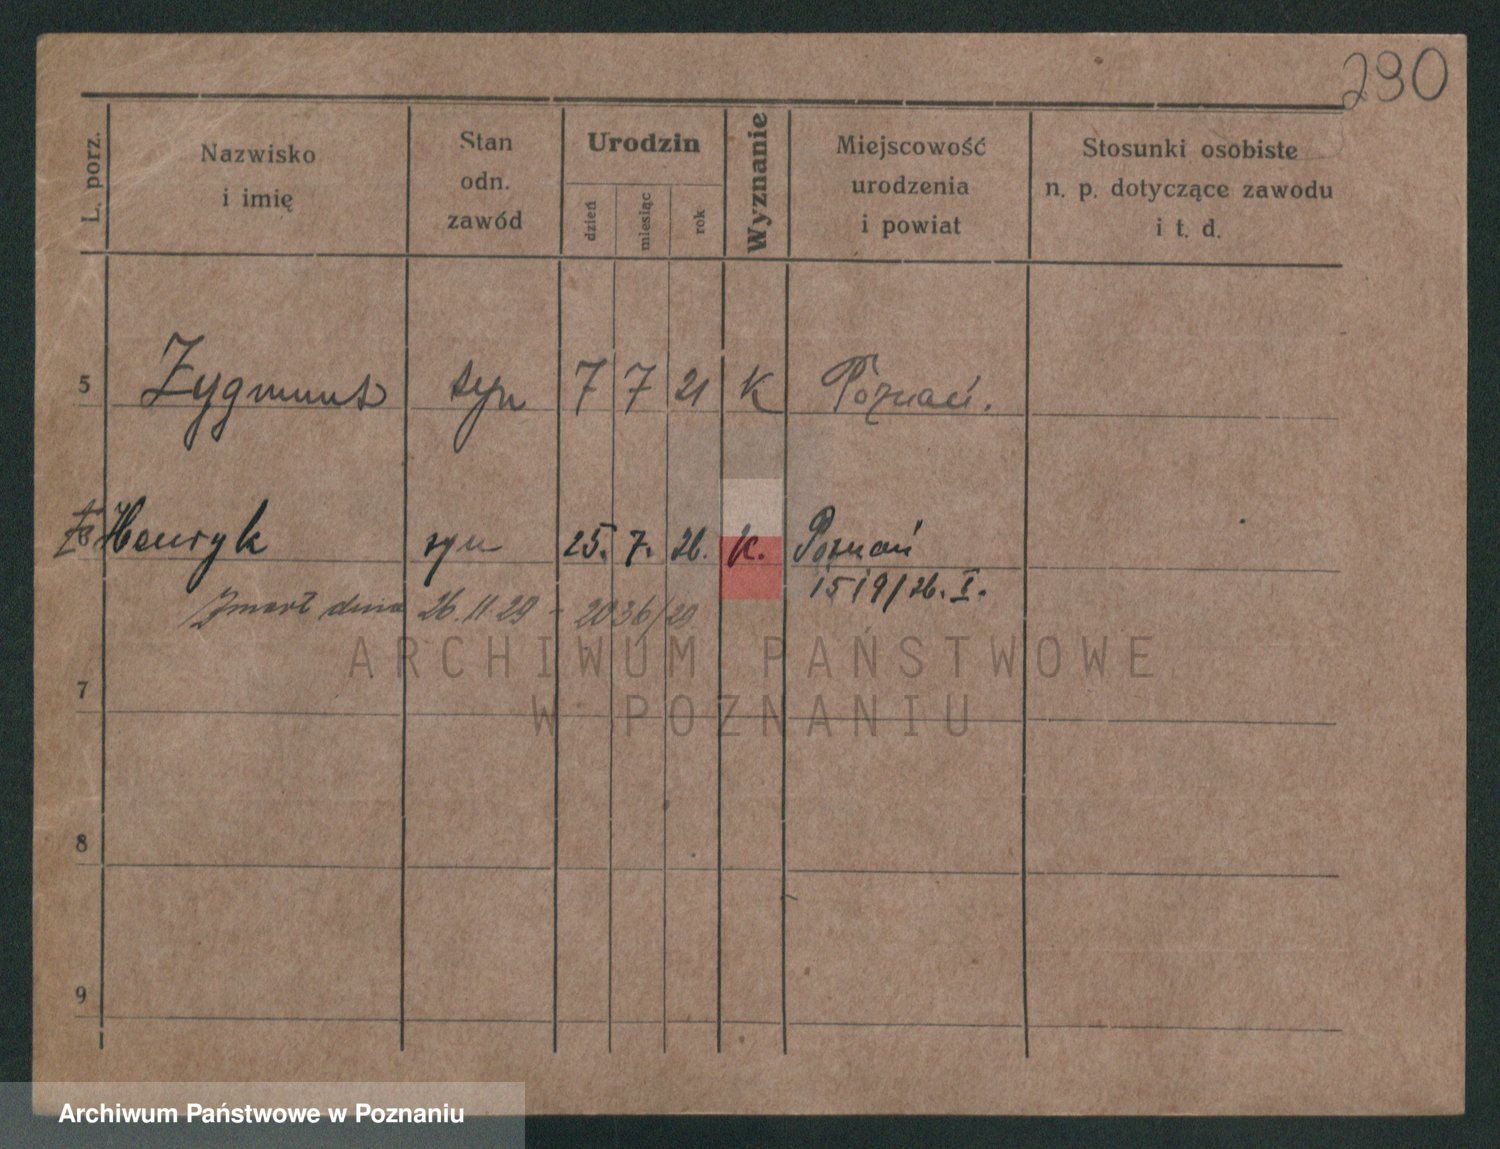 290
L. porz. Nazwisko i imię Stan odn. zawód Urodzin dzień miesiąc rok Wyznanie Miejscowość urodzenia i powiat Stosunki osobiste n. p. dotyczące zawodu i t. d.
5 Zygmunt syn 7 7 21 K Poznań.
6 Henryk syn 25. 7. 26. K. Poznań
1519/26. I.
Zmarł dnia 26.11.29 - 2036/29
ARCHIWUM PAŃSTWOWE
W POZNANIU
7
8
9
Archiwum Państwowe w Poznaniu